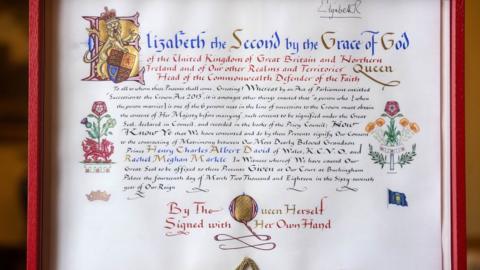 Elizabeth R
Elizabeth the Second by the Grace of God
of the United Kingdom of Great Britain and Northern
Ireland and of Our other Realms and Territories Queen
Head of the Commonwealth Defender of the Faith
To all to whom these Presents shall come, Greeting! Whereas by an Act of Parliament entitled
"Succession to the Crown Act 2013", it is amongst other things enacted that "a person who [when
the person marries] is one of the 6 persons next in the line of succession to the Crown must obtain
the consent of Her Majesty before marrying", such consent to be signified under the Great
Seal, declared in Council, and recorded in the books of the Privy Council; Now
Know Ye that We have consented and do by these Presents signify Our Consent
to the contracting of Matrimony between Our Most Dearly Beloved Grandson
Prince Henry Charles Albert David of Wales, K.C.V.O., and
Rachel Meghan Markle In Witness whereof We have caused Our
Great Seal to be affixed to these Presents Given at Our Court at Buckingham
Palace the fourteenth day of March Two Thousand and Eighteen in the Sixty-seventh
year of Our Reign
By The Queen Herself
Signed with Her Own Hand